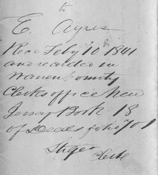 E. Ayres
Rec Feby 10th 1841
and recorded in
Warren County
Clerks office New
Jersey Book 18
of Deeds folio 701
Clerk